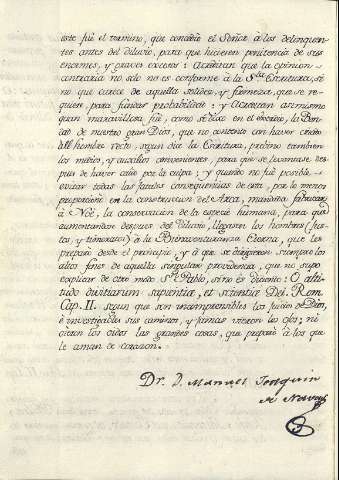 este fué el termino, que concedio el Señor à los delinquen-
tes antes del diluvio, para que hiciesen penitencia de sus
enormes, y graves excesos: Acreditan que la opinion
contraria no solo no es conforme à la Sta. Escritura, si
no que carece de aquella solidez, y firmeza, que se re-
quiere para fundar probabilidad: y Acreditan asimismo
quan maravillosa fué, como se dixo en el exordio, la Bon-
dad de nuestro gran Dios, que no contento con haver criado
al hombre recto, segun dice la Escritura, previno tambien
los medios, y auxilios convenientes, para que se levantase, des-
pues de haver caido por la culpa; y quando no fué posible
evitar todas las fatales consequencias de esta, por lo menos
proporcionó en la construccion del Arca, mandada fabricar
à Noè, la conservacion de la especie humana, para que
aumentandose despues del Diluvio, llegasen los hombres (jus-
tos, y timoratos) à la Bienaventuranza Eterna, que les
preparó desde el principio, y à que se dirigieron siempre los
altos fines de aquella singular providencia, que no supo
explicar de otro modo Sn. Pablo, sino es diciendo: O alti-
tudo divitiarum sapientiæ, et scientiæ Dei. Rom.
Cap. II. segun que son incomprensibles los juicios de Dios,
è investigables sus caminos, y jamas vieron los ojos, ni
oieron los oidos las grandes cosas, que preparó à los que
le aman de corazon.
Dr. D. Manuel Joaquin
de